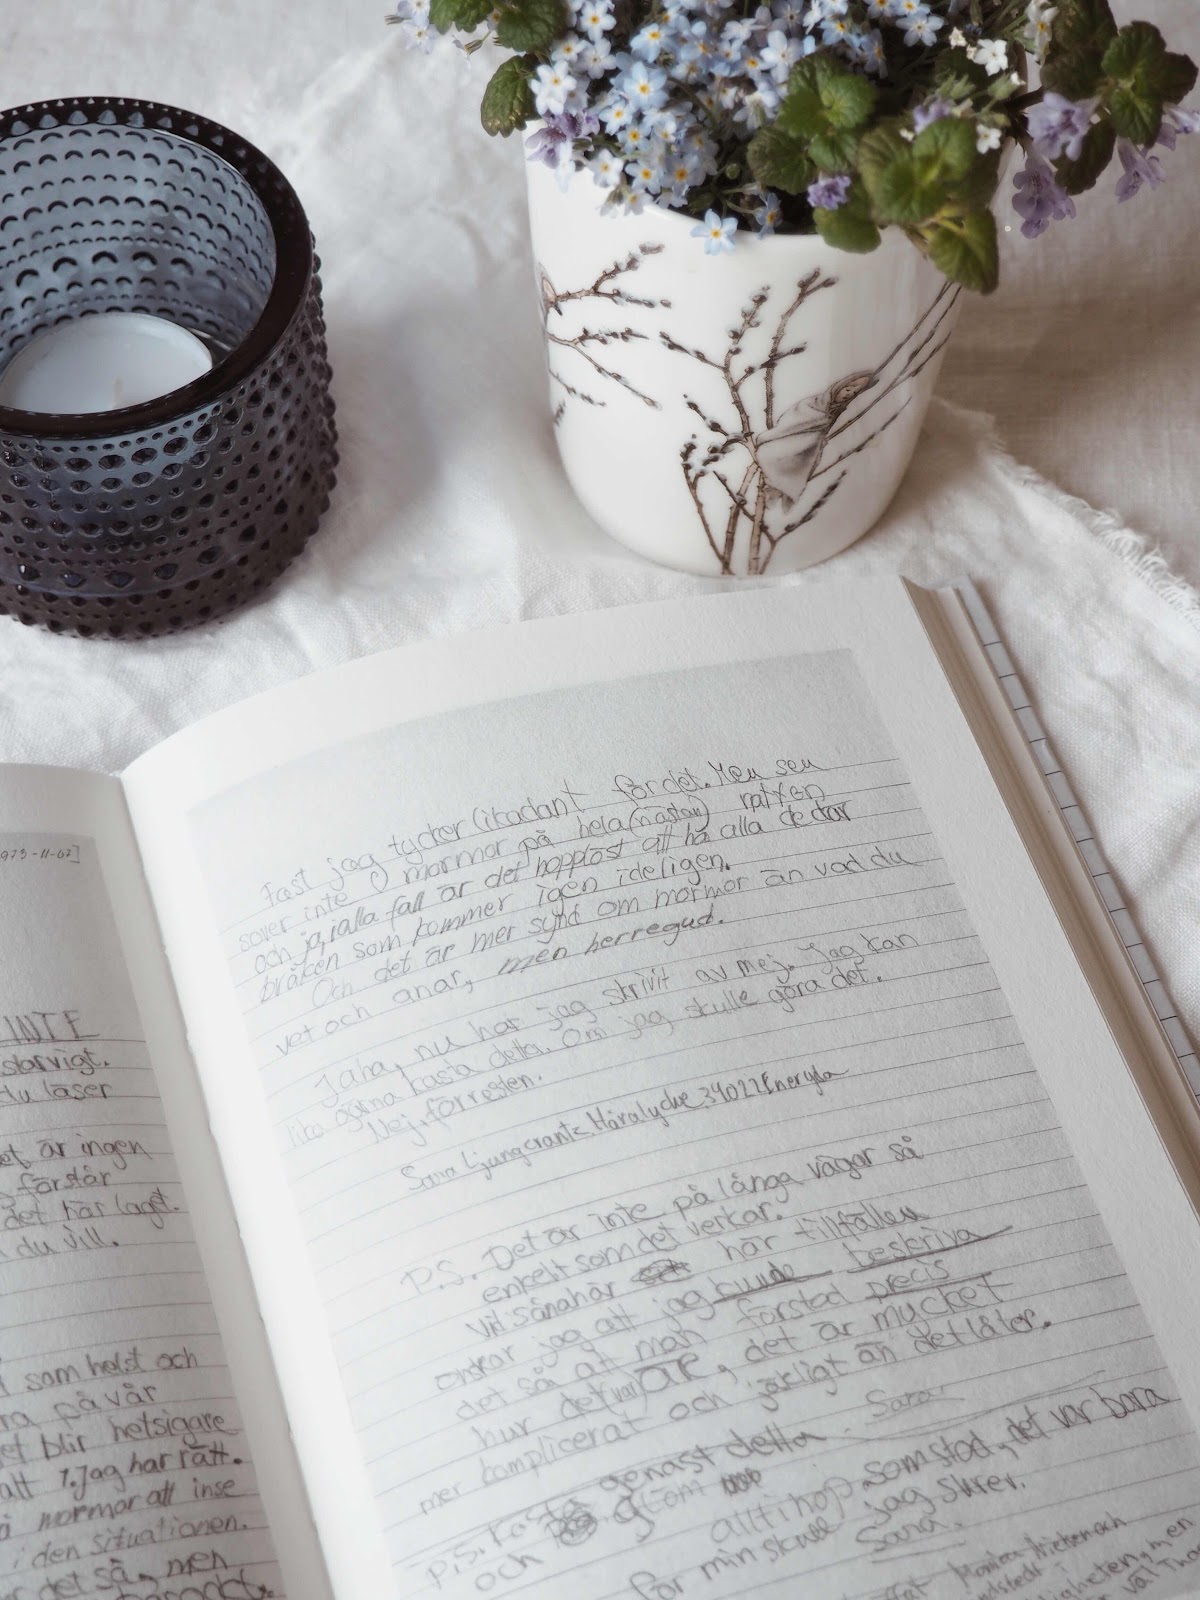 973-11-07]
INTE
storvigt.
du läser
et är ingen
förstår
det här laget.
du vill.
som helst och
ra på vår
et blir hetsigare
att 1. Jag har rätt.
å mormor att inse
i den situationen.
r det så, men
Fast jag tycker likadant för det. Men sen
sover inte mormor på hela (nästan) natten
och ja, ialla fall är det hopplöst att ha alla de där
bråken som kommer igen ideligen.
Och det är mer synd om mormor än vad du
vet och anar, men herregud.
Jaha, nu har jag skrivit av mej. Jag kan
lika gärna kasta detta. Om jag skulle göra det.
Nej, förresten.
Sara Ljungcrantz Häralycke 34022 Eneryda
P.S. Det är inte på långa vägar så
enkelt som det verkar.
Vid sånahär här tillfällen
önskar jag att jag kunde beskriva
det så att man förstod precis
hur det (var) ÄR, det är mycket
mer komplicerat och jäkligt än det låter.
Sara
P.S. kasta genast detta
och glöm
alltihop som stod, det var bara
för min skull jag skrev.
Sara.